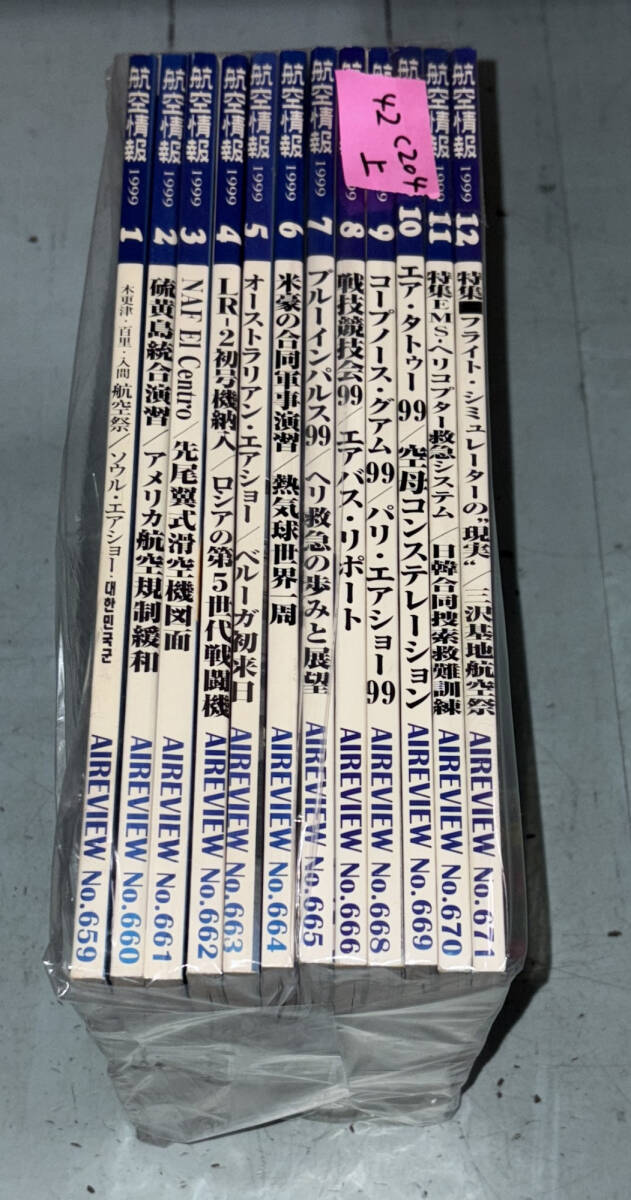 航空情報 1999 1 木更津・百里・入間 航空祭／ソウル・エアショー・대한민국군 AIREVIEW No.659
航空情報 1999 2 硫黄島統合演習／アメリカ航空規制緩和 AIREVIEW No.660
航空情報 1999 3 NAF El Centro／先尾翼式滑空機図面 AIREVIEW No.661
航空情報 1999 4 LR-2初号機納入／ロシアの第5世代戦闘機 AIREVIEW No.662
航空情報 1999 5 オーストラリアン・エアショー／ベルーガ初来日 AIREVIEW No.663
航空情報 1999 6 米豪の合同軍事演習／熱気球世界一周 AIREVIEW No.664
航空情報 1999 7 ブルーインパルス99 ヘリ救急の歩みと展望 AIREVIEW No.665
航空 8 戦技競技会99／エアバス・リポート AIREVIEW No.666
航空 9 コープノース・グアム99／パリ・エアショー99 AIREVIEW No.668
航空 10 エア・タトゥー99／空母コンステレーション AIREVIEW No.669
航空情報 1999 11 特集EMS・ヘリコプター救急システム／日韓合同捜索救難訓練 AIREVIEW No.670
航空情報 1999 12 特集■フライト・シミュレーターの"現実"／三沢基地航空祭 AIREVIEW No.671
42 C204
上